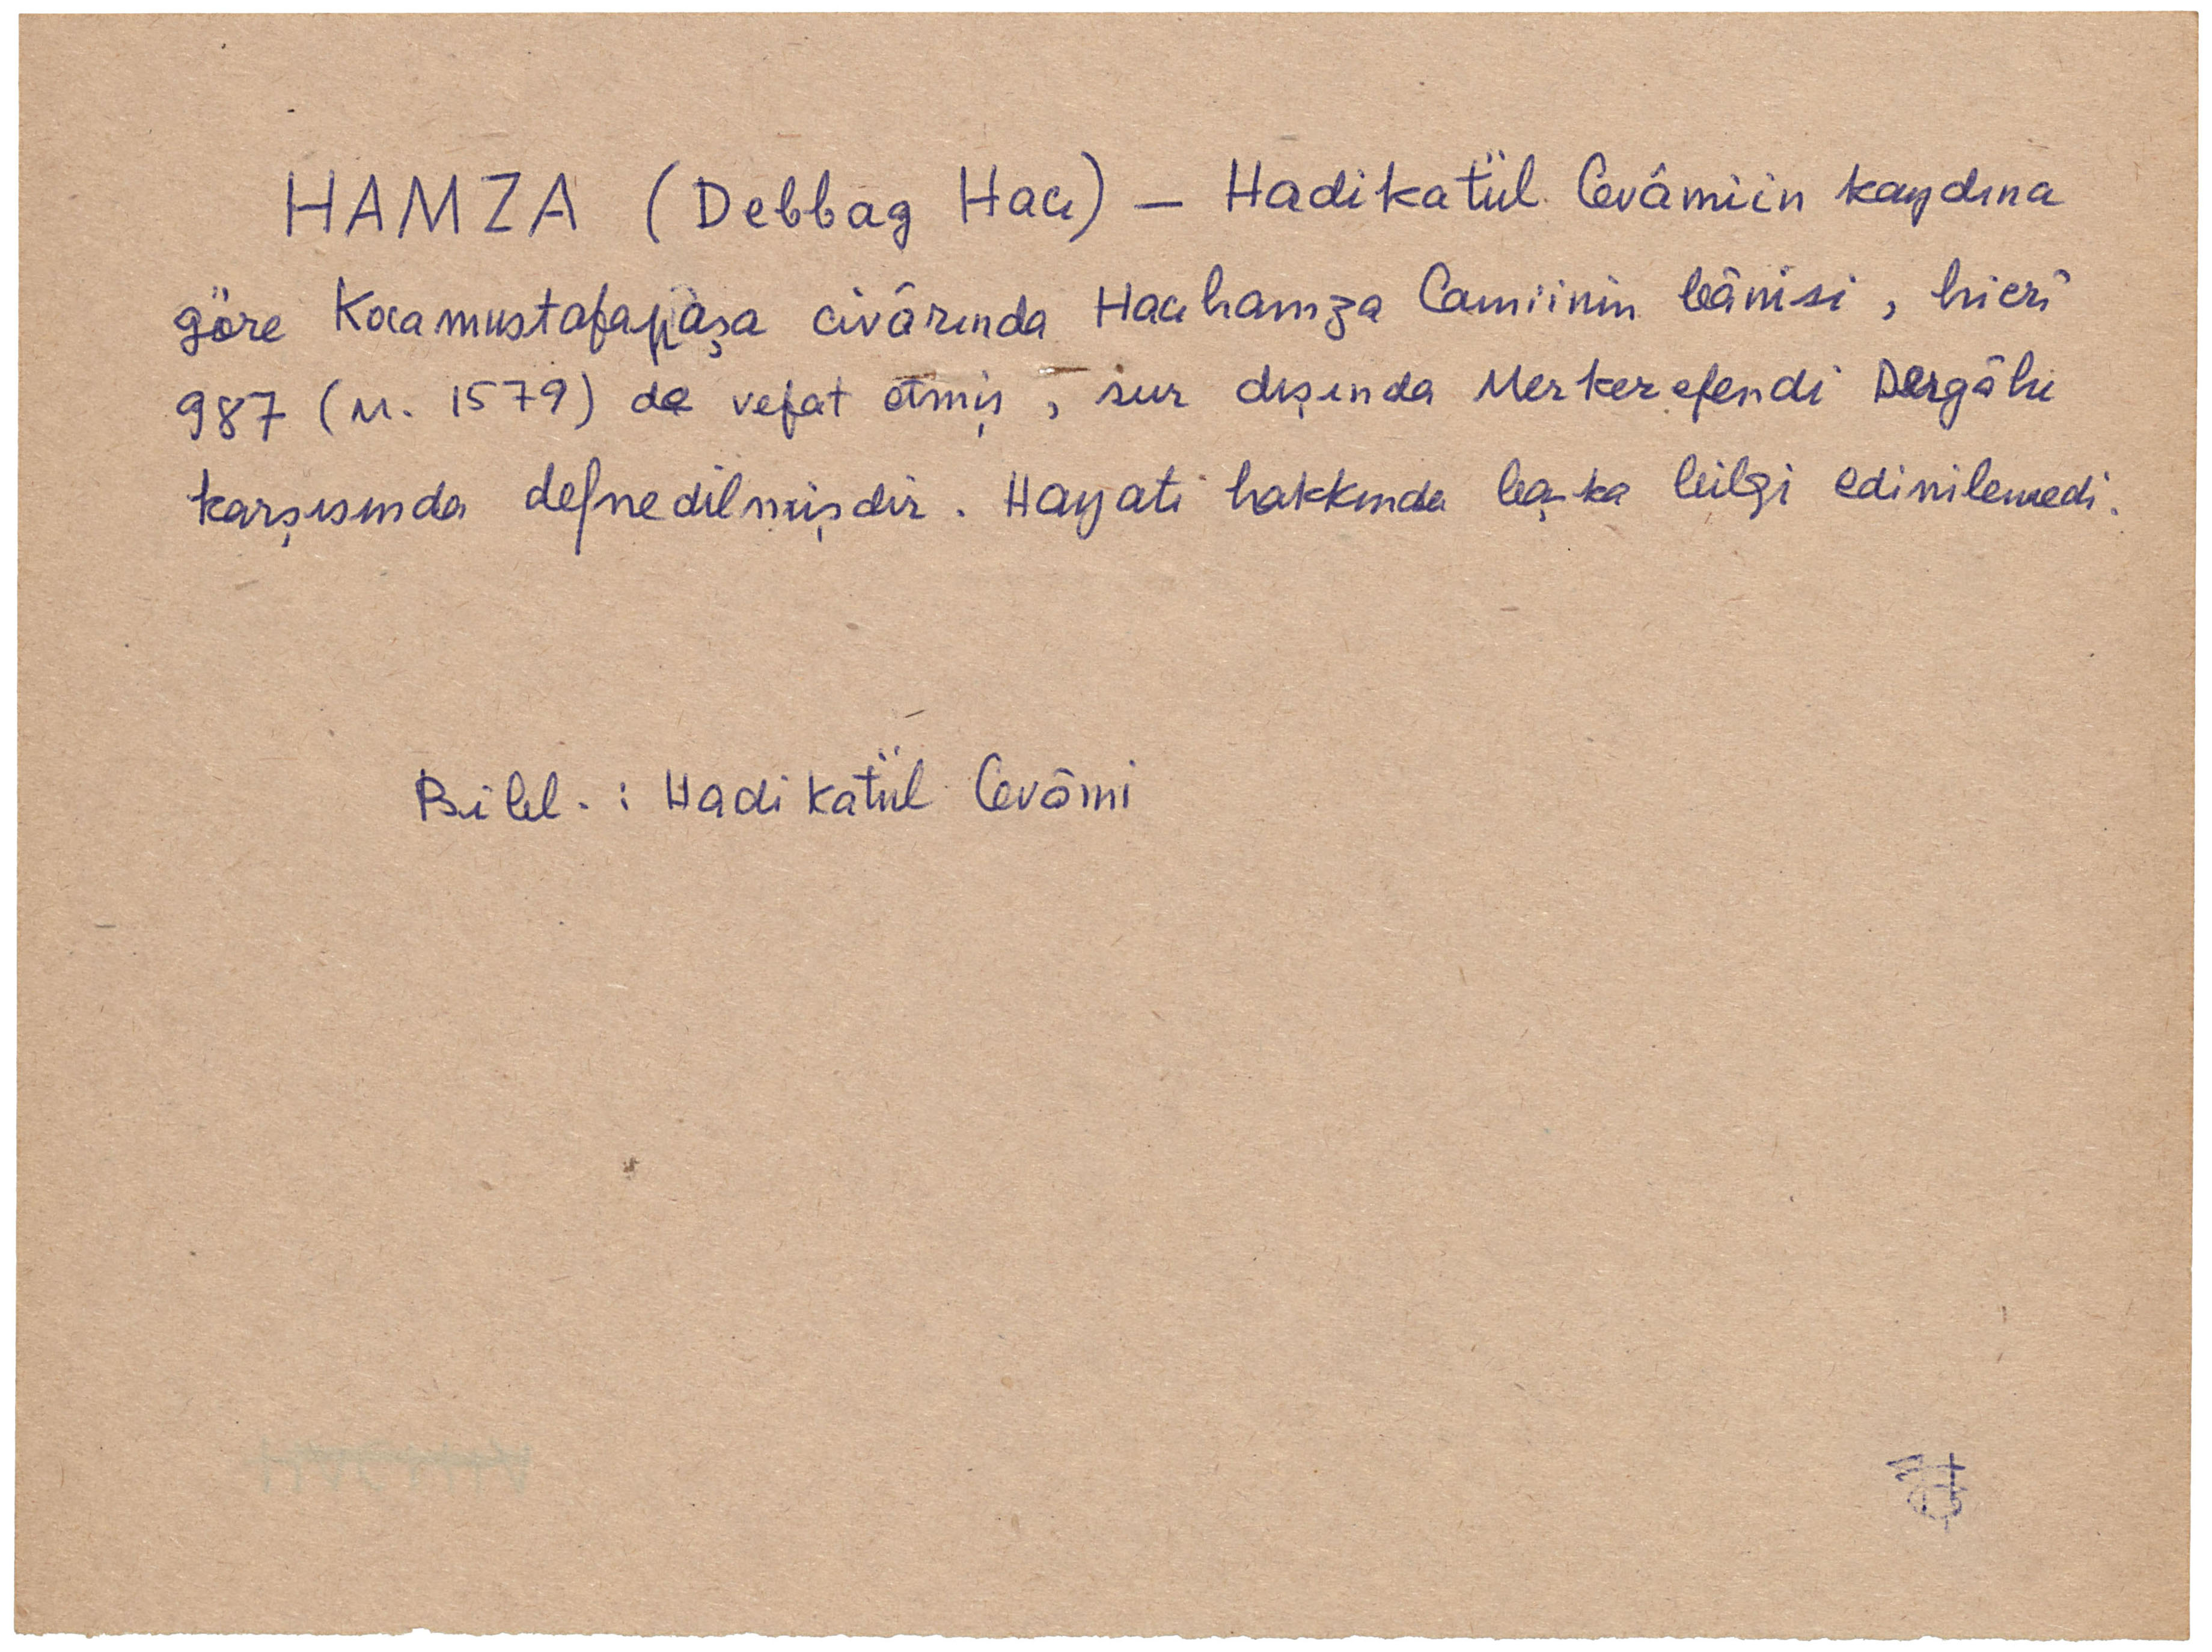 HAMZA (Debbag Hacı) — Hadikatül Cevâmiin kaydına
göre Kocamustafapaşa civârında Hacıhamza Camiinin bânisi, hicrî
987 (M. 1579) de vefat etmiş, sur dışında Merkezefendi Dergâhı
karşısında defnedilmişdir. Hayatı hakkında başka bilgi edinilemedi.
Bibl. : Hadikatül Cevâmi